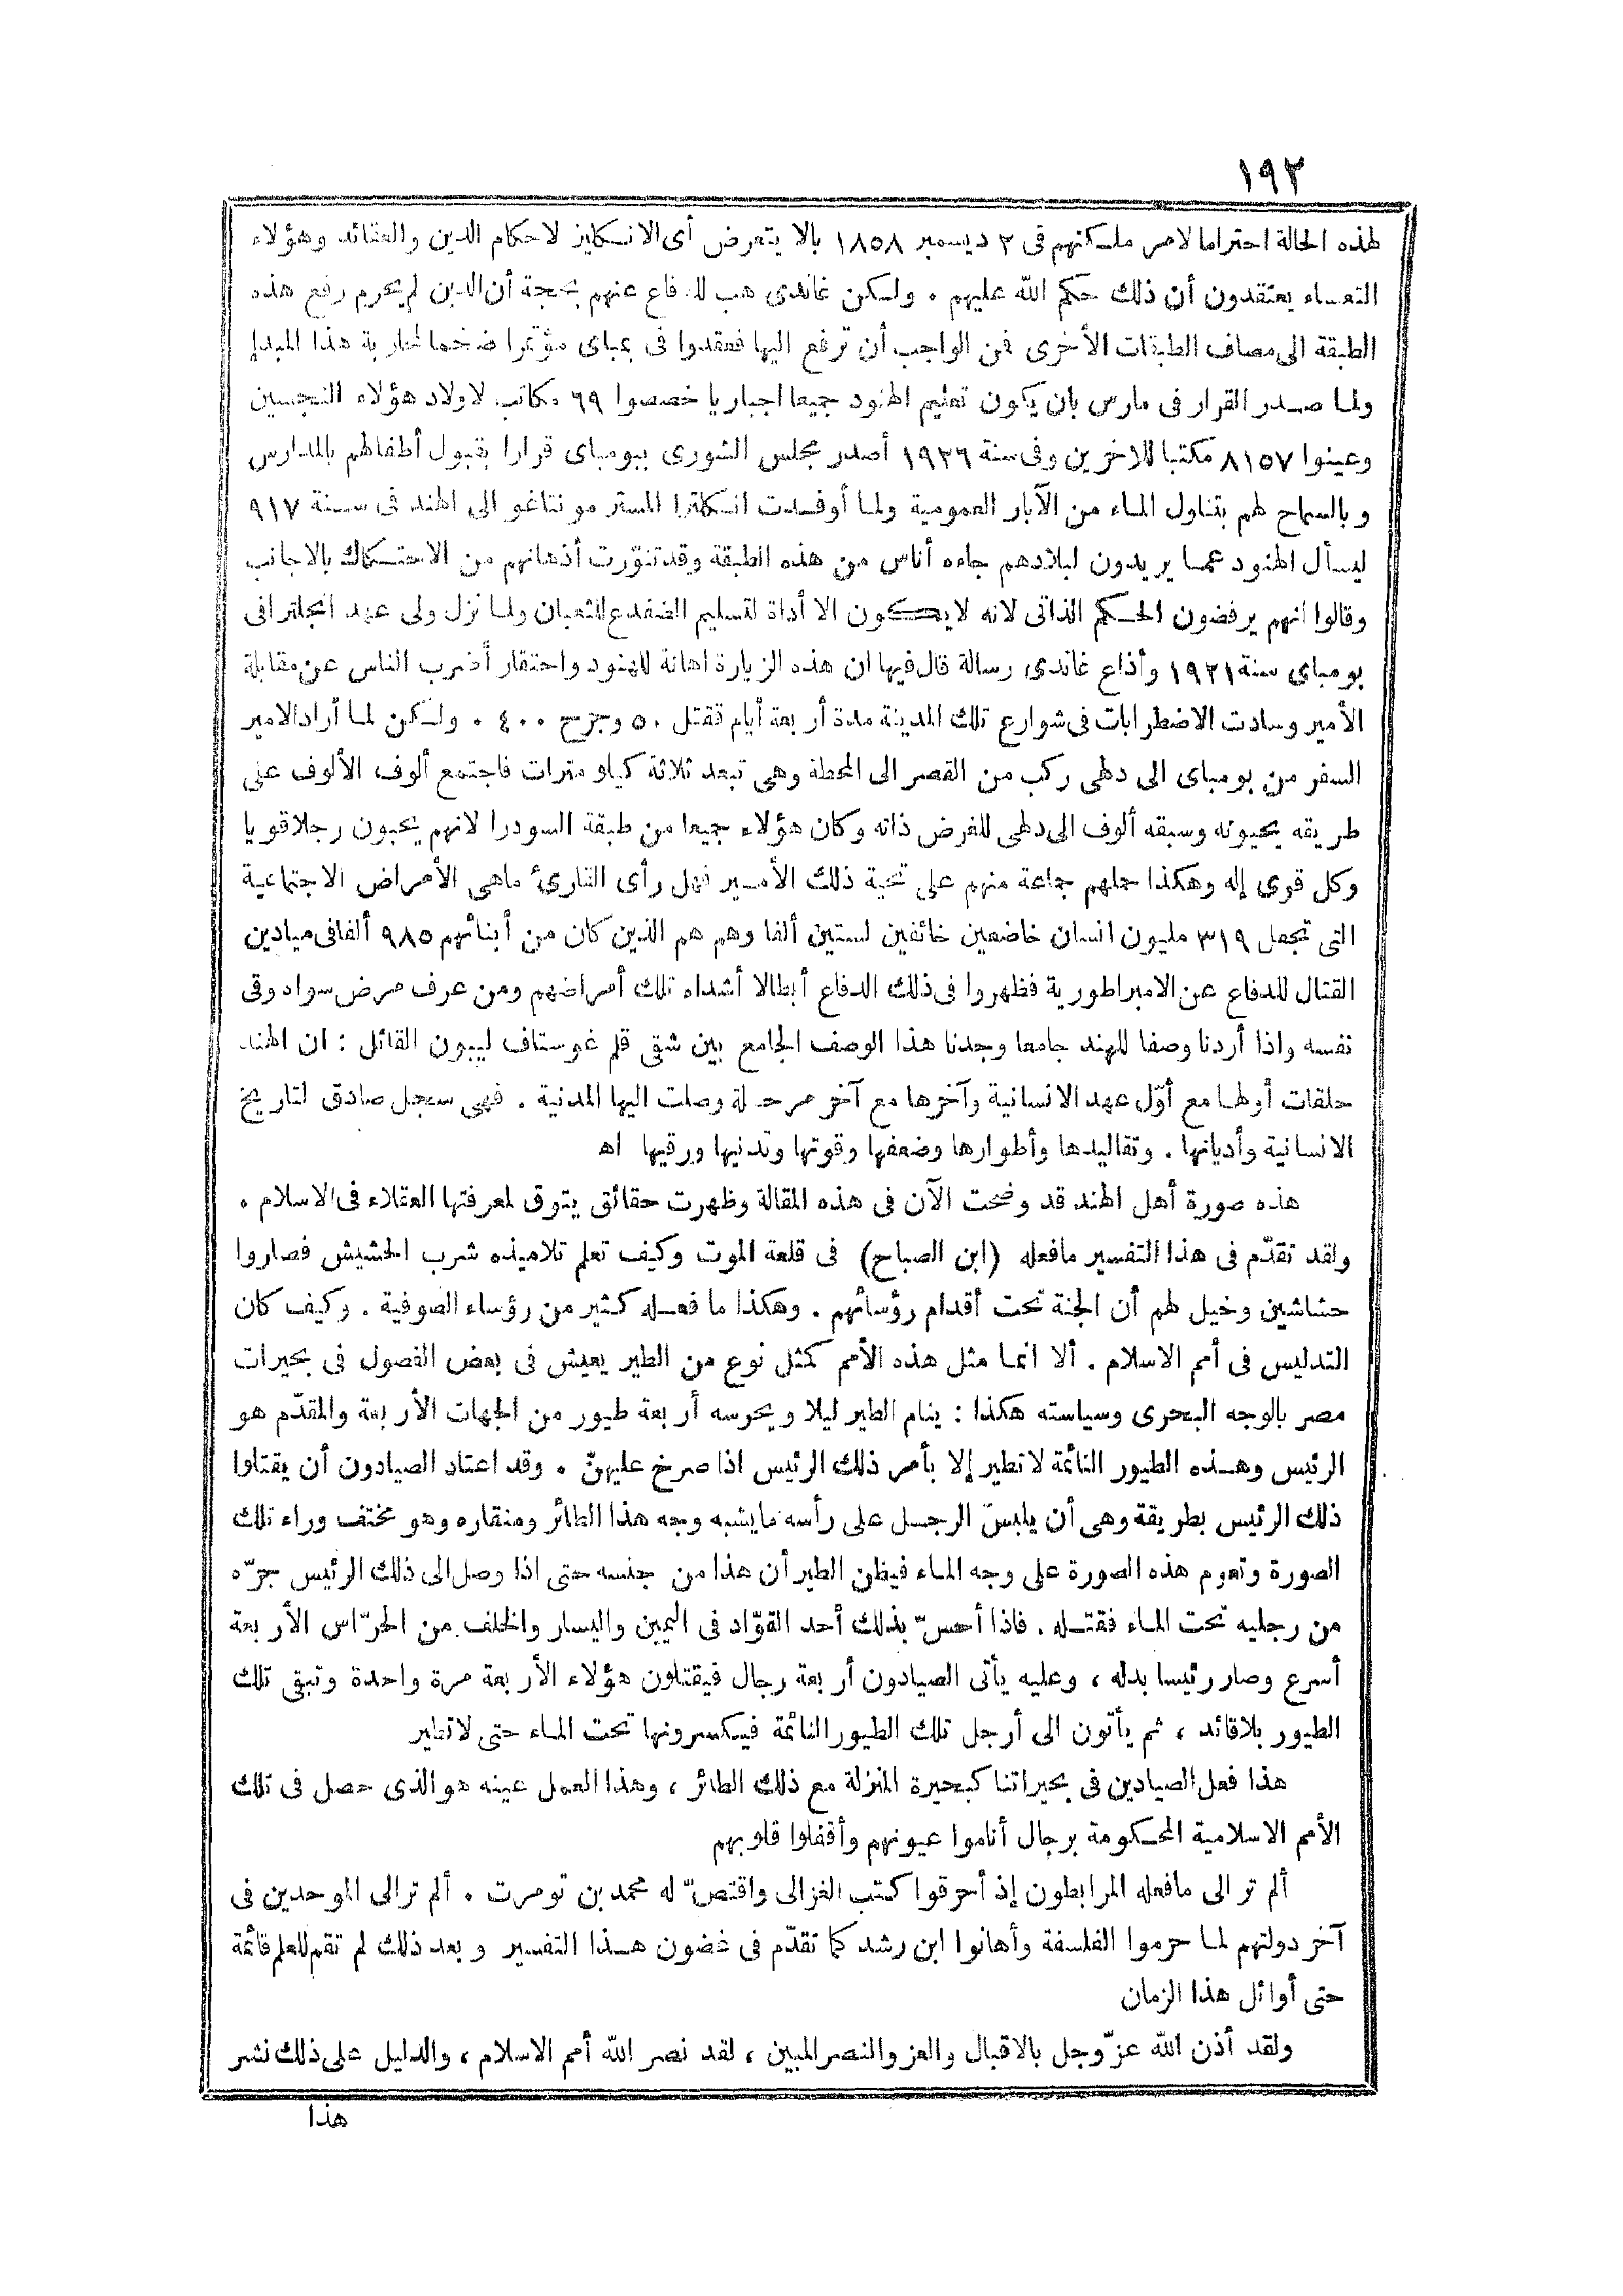 ١٩٢
لهذه الحالة احتراما لامر ملكتهم فى ٢ ديسمبر ١٨٥٨ بالا يتعرض أى الانكليز لاحكام الدين والعقائد وهؤلاء
التعساء يعتقدون أن ذلك حكم الله عليهم . ولكن غاندى هب للدفاع عنهم بحجة أن الدين لم يحرم رفع هذه
الطبقة الى مصاف الطبقات الأخرى فمن الواجب أن ترفع اليها فعقدوا فى بمباى مؤتمرا ضخما لمحاربة هذا المبدإ
ولما صدر القرار فى مارس بان يكون تعليم الهنود جميعا اجباريا خصصوا ٦٩ مكاتب لاولاد هؤلاء النجسين
وعينوا ٨١٥٧ مكتبا للاخرين وفى سنة ١٩٢٦ أصدر مجلس الشورى ببومباى قرارا بقبول أطفالهم بالمدارس
وبالسماح لهم بتناول الماء من الآبار العمومية ولما أوفدت انكلترا المستر مونتاغو الى الهند فى سنة ٩١٧
ليسأل الهنود عما يريدون لبلادهم جاءه أناس من هذه الطبقة وقد تنوّرت أذهانهم من الاحتكاك بالاجانب
وقالوا انهم يرفضون الحكم الذاتى لانه لا يكون الا أداة لتسليم الضفدع للثعبان ولما نزل ولى عهد انجلترا فى
بومباى سنة ١٩٢١ وأذاع غاندى رسالة قال فيها ان هذه الزيارة اهانة للهنود واحتقار أضرب الناس عن مقابلة
الأمير وسادت الاضطرابات فى شوارع تلك المدينة مدة أربعة أيام فقتل ٥٠ وجرح ٤٠٠ . ولكن لما أراد الامير
السفر من بومباى الى دهلى ركب من القصر الى المحطة وهى تبعد ثلاثة كيلو مترات فاجتمع ألوف الألوف على
طريقه يحيونه وسبقه ألوف الى دهلى للغرض ذاته وكان هؤلاء جميعا من طبقة السودرا لانهم يحبون رجلا قويا
وكل قوى إله وهكذا حملهم جماعة منهم على تحية ذلك الأمير فهل رأى القارئ ماهى الأمراض الاجتماعية
التى تجعل ٣١٩ مليون انسان خاضعين خائفين لستين ألفا وهم هم الذين كان من أبنائهم ٩٨٥ ألفا فى ميادين
القتال للدفاع عن الامبراطورية فظهروا فى ذلك الدفاع أبطالا أشداء تلك أمراضهم ومن عرف مرض سواه وقى
نفسه واذا أردنا وصفا للهند جامعا وجدنا هذا الوصف الجامع بين شقى قلم غوستاف ليبون القائل : ان الهند
حلقات أولها مع أوّل عهد الانسانية وآخرها مع آخر مرحلة وصلت اليها المدنية . فهى سجل صادق لتاريخ
الانسانية وأديانها . وتقاليدها وأطوارها وضعفها وقوتها وتدنيها ورقيها اهـ
هذه صورة أهل الهند قد وضحت الآن فى هذه المقالة وظهرت حقائق يتوق لمعرفتها العقلاء فى الاسلام .
ولقد تقدّم فى هذا التفسير مافعله (ابن الصباح) فى قلعة الموت وكيف تعلم تلاميذه شرب الحشيش فصاروا
حشاشين وخيل لهم أن الجنة تحت أقدام رؤسائهم . وهكذا ما فعله كثير من رؤساء الصوفية . وكيف كان
التدليس فى أمم الاسلام . ألا انما مثل هذه الأمم كمثل نوع من الطير يعيش فى بعض الفصول فى بحيرات
مصر بالوجه البحرى وسياسته هكذا : ينام الطير ليلا ويحرسه أربعة طيور من الجهات الأربعة والمقدّم هو
الرئيس وهذه الطيور النائمة لا تطير إلا بأمر ذلك الرئيس اذا صرخ عليهنّ . وقد اعتاد الصيادون أن يقتلوا
ذلك الرئيس بطريقة وهى أن يلبس الرجل على رأسه مايشبه وجه هذا الطائر ومنقاره وهو مختف وراء تلك
الصورة وتعوم هذه الصورة على وجه الماء فيظن الطير أن هذا من جنسه حتى اذا وصل الى ذلك الرئيس جرّه
من رجليه تحت الماء فقتله . فاذا أحسّ بذلك أحد القوّاد فى اليمين واليسار والخلف من الحرّاس الأربعة
أسرع وصار رئيسا بدله ، وعليه يأتى الصيادون أربعة رجال فيقتلون هؤلاء الأربعة مرة واحدة وتبقى تلك
الطيور بلاقائد ، ثم يأتون الى أرجل تلك الطيور النائمة فيكسرونها تحت الماء حتى لا تطير
هذا فعل الصيادين فى بحيراتنا كبحيرة المنزلة مع ذلك الطائر ، وهذا العمل عينه هو الذى حصل فى تلك
الأمم الاسلامية المحكومة برجال أناموا عيونهم وأقفلوا قلوبهم
ألم تر الى مافعله المرابطون إذ أحرقوا كتب الغزالى واقتصّ له محمد بن تومرت . ألم تر الى الموحدين فى
آخر دولتهم لما حرموا الفلسفة وأهانوا ابن رشد كما تقدّم فى غضون هذا التفسير وبعد ذلك لم تقم للعلم قائمة
حتى أوائل هذا الزمان
ولقد أذن الله عزّ وجل بالاقبال والعز والنصر المبين ، لقد نصر الله أمم الاسلام ، والدليل على ذلك نشر
هذا